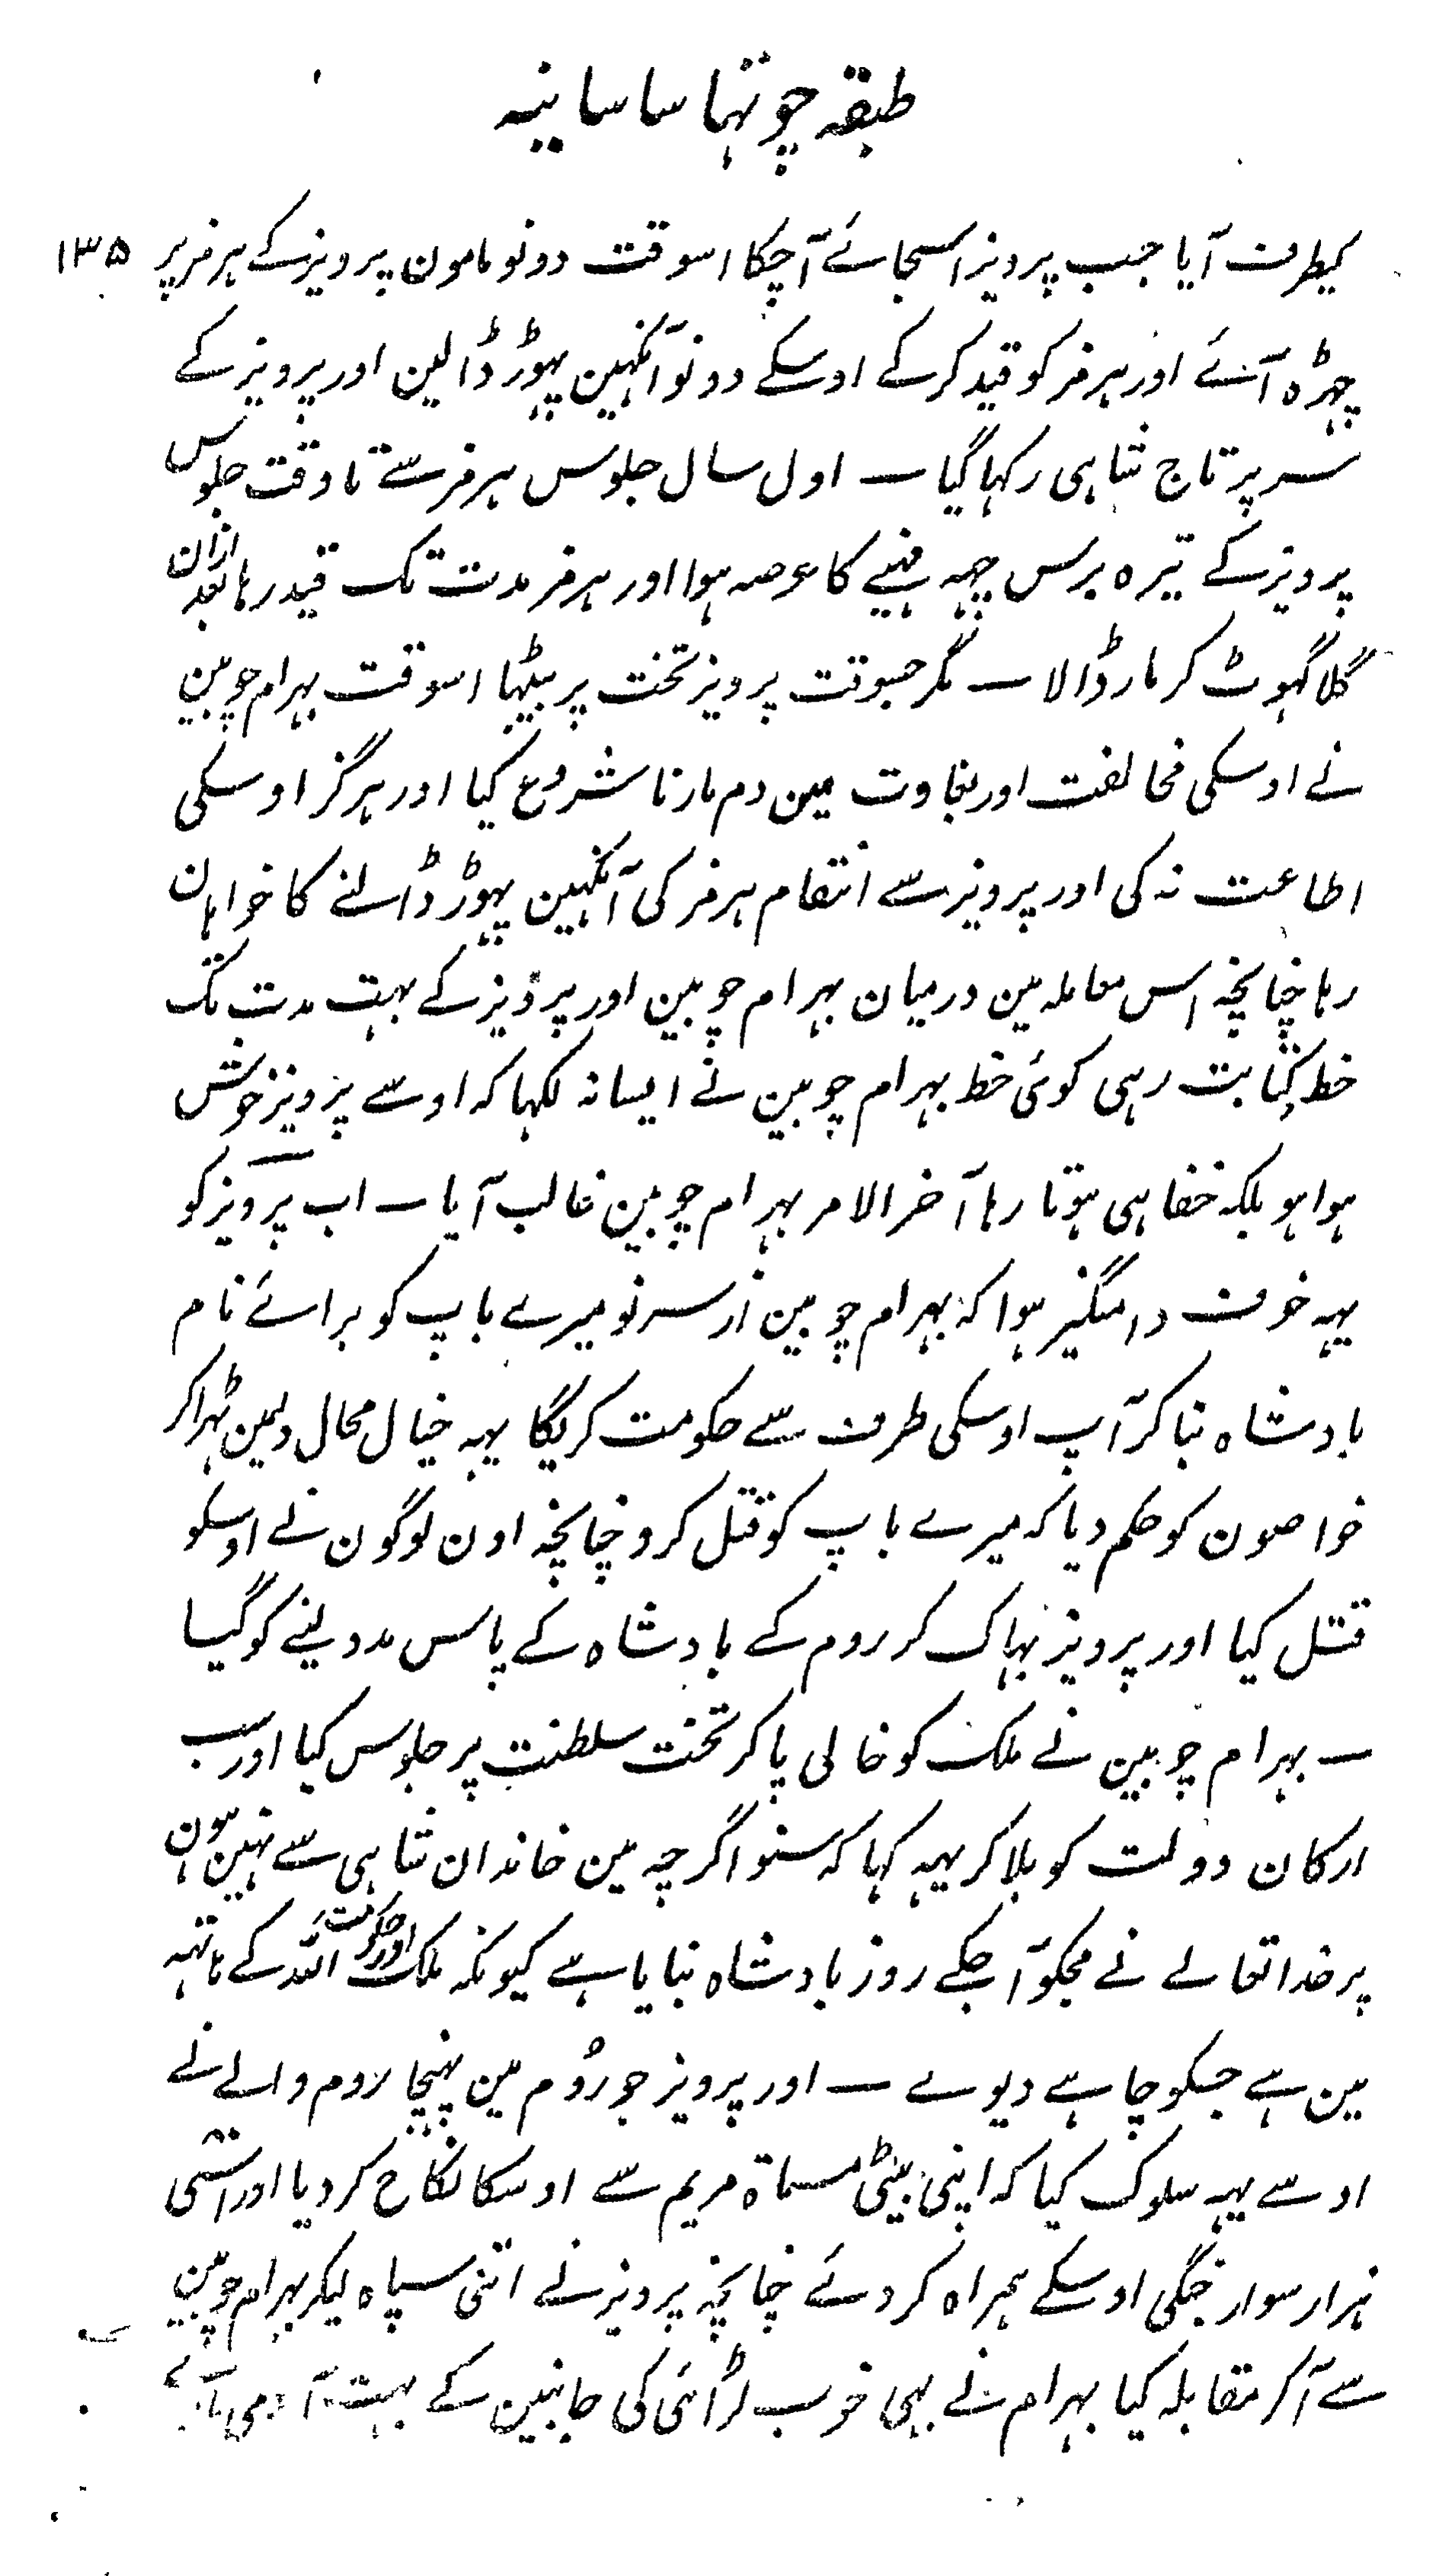 طبقہ چوتہا ساسانیہ
کیطرف آیا جب پرویز اسجائے آچکا اسوقت دونو مامون پرویز کے ہرمز پر ۱۳۵
چہڑہ آئے اور ہرمز کو قید کرکے اوسکے دونو آنکہین پہوڑ ڈالین اور پرویز کے
سر پر تاج شاہی رکہا گیا ـ اول سال جلوس ہرمز سے تا وقت جلوس
پرویز کے تیرہ برس چہہ مہینے کا عرصہ ہوا اور ہرمز مدت تک قید رہا بعد ازان
گلا گہوٹ کر مار ڈالا ـ مگر جسوقت پرویز تخت پر بیٹہا اسوقت بہرام چوبین
نے اوسکی مخالفت اور بغاوت مین دم مارنا شروع کیا اور ہرگز اوسکی
اطاعت نہ کی اور پرویز سے انتقام ہرمز کی آنکہین پہوڑ ڈالنے کا خواہان
رہا چنانچہ اس معاملہ مین درمیان بہرام چوبین اور پرویز کے بہت مدت تک
خط کتابت رہی کوئی خط بہرام چوبین نے ایسا نہ لکہا کہ اوسے پرویز خوش
ہوا ہو بلکہ خفا ہی ہوتا رہا آخر الامر بہرام چوبین غالب آیا ـ اب پرویز کو
یہہ خوف دامنگیر ہوا کہ بہرام چوبین از سرنو میرے باپ کو برائے نام
بادشاہ بنا کر آپ اوسکی طرف سے حکومت کریگا یہہ خیال محال دلمین ٹہرا کر
خواصون کو حکم دیا کہ میرے باپ کو قتل کرو چنانچہ اون لوگون نے اوسکو
قتل کیا اور پرویز بہاگ کر روم کے بادشاہ کے پاس مدد لینے کو گیا
ـ بہرام چوبین نے ملک کو خالی پا کر تخت سلطنت پر جلوس کیا اور سب
ارکان دولت کو بلا کر یہہ کہا کہ سنو اگرچہ مین خاندان شاہی سے نہین ہون
پر خدا تعالے نے مجکو آجکے روز بادشاہ بنایا ہے کیونکہ ملک اور حکومت اللہ کے ہاتہہ
مین ہے جسکو چاہے دیوے ـ اور پرویز جو رُوم مین پہنچا روم والے نے
اوسے یہہ سلوک کیا کہ اپنی بیٹی مسماۃ مریم سے اوسکا نکاح کر دیا اور اسّی
ہزار سوار جنگی اوسکے ہمراہ کر دئے چنانچہ پرویز نے اتنی سپاہ لیکر بہرام چوبین
سے آکر مقابلہ کیا بہرام نے بہی خوب لڑائی کی جانبین کے بہت آدمی